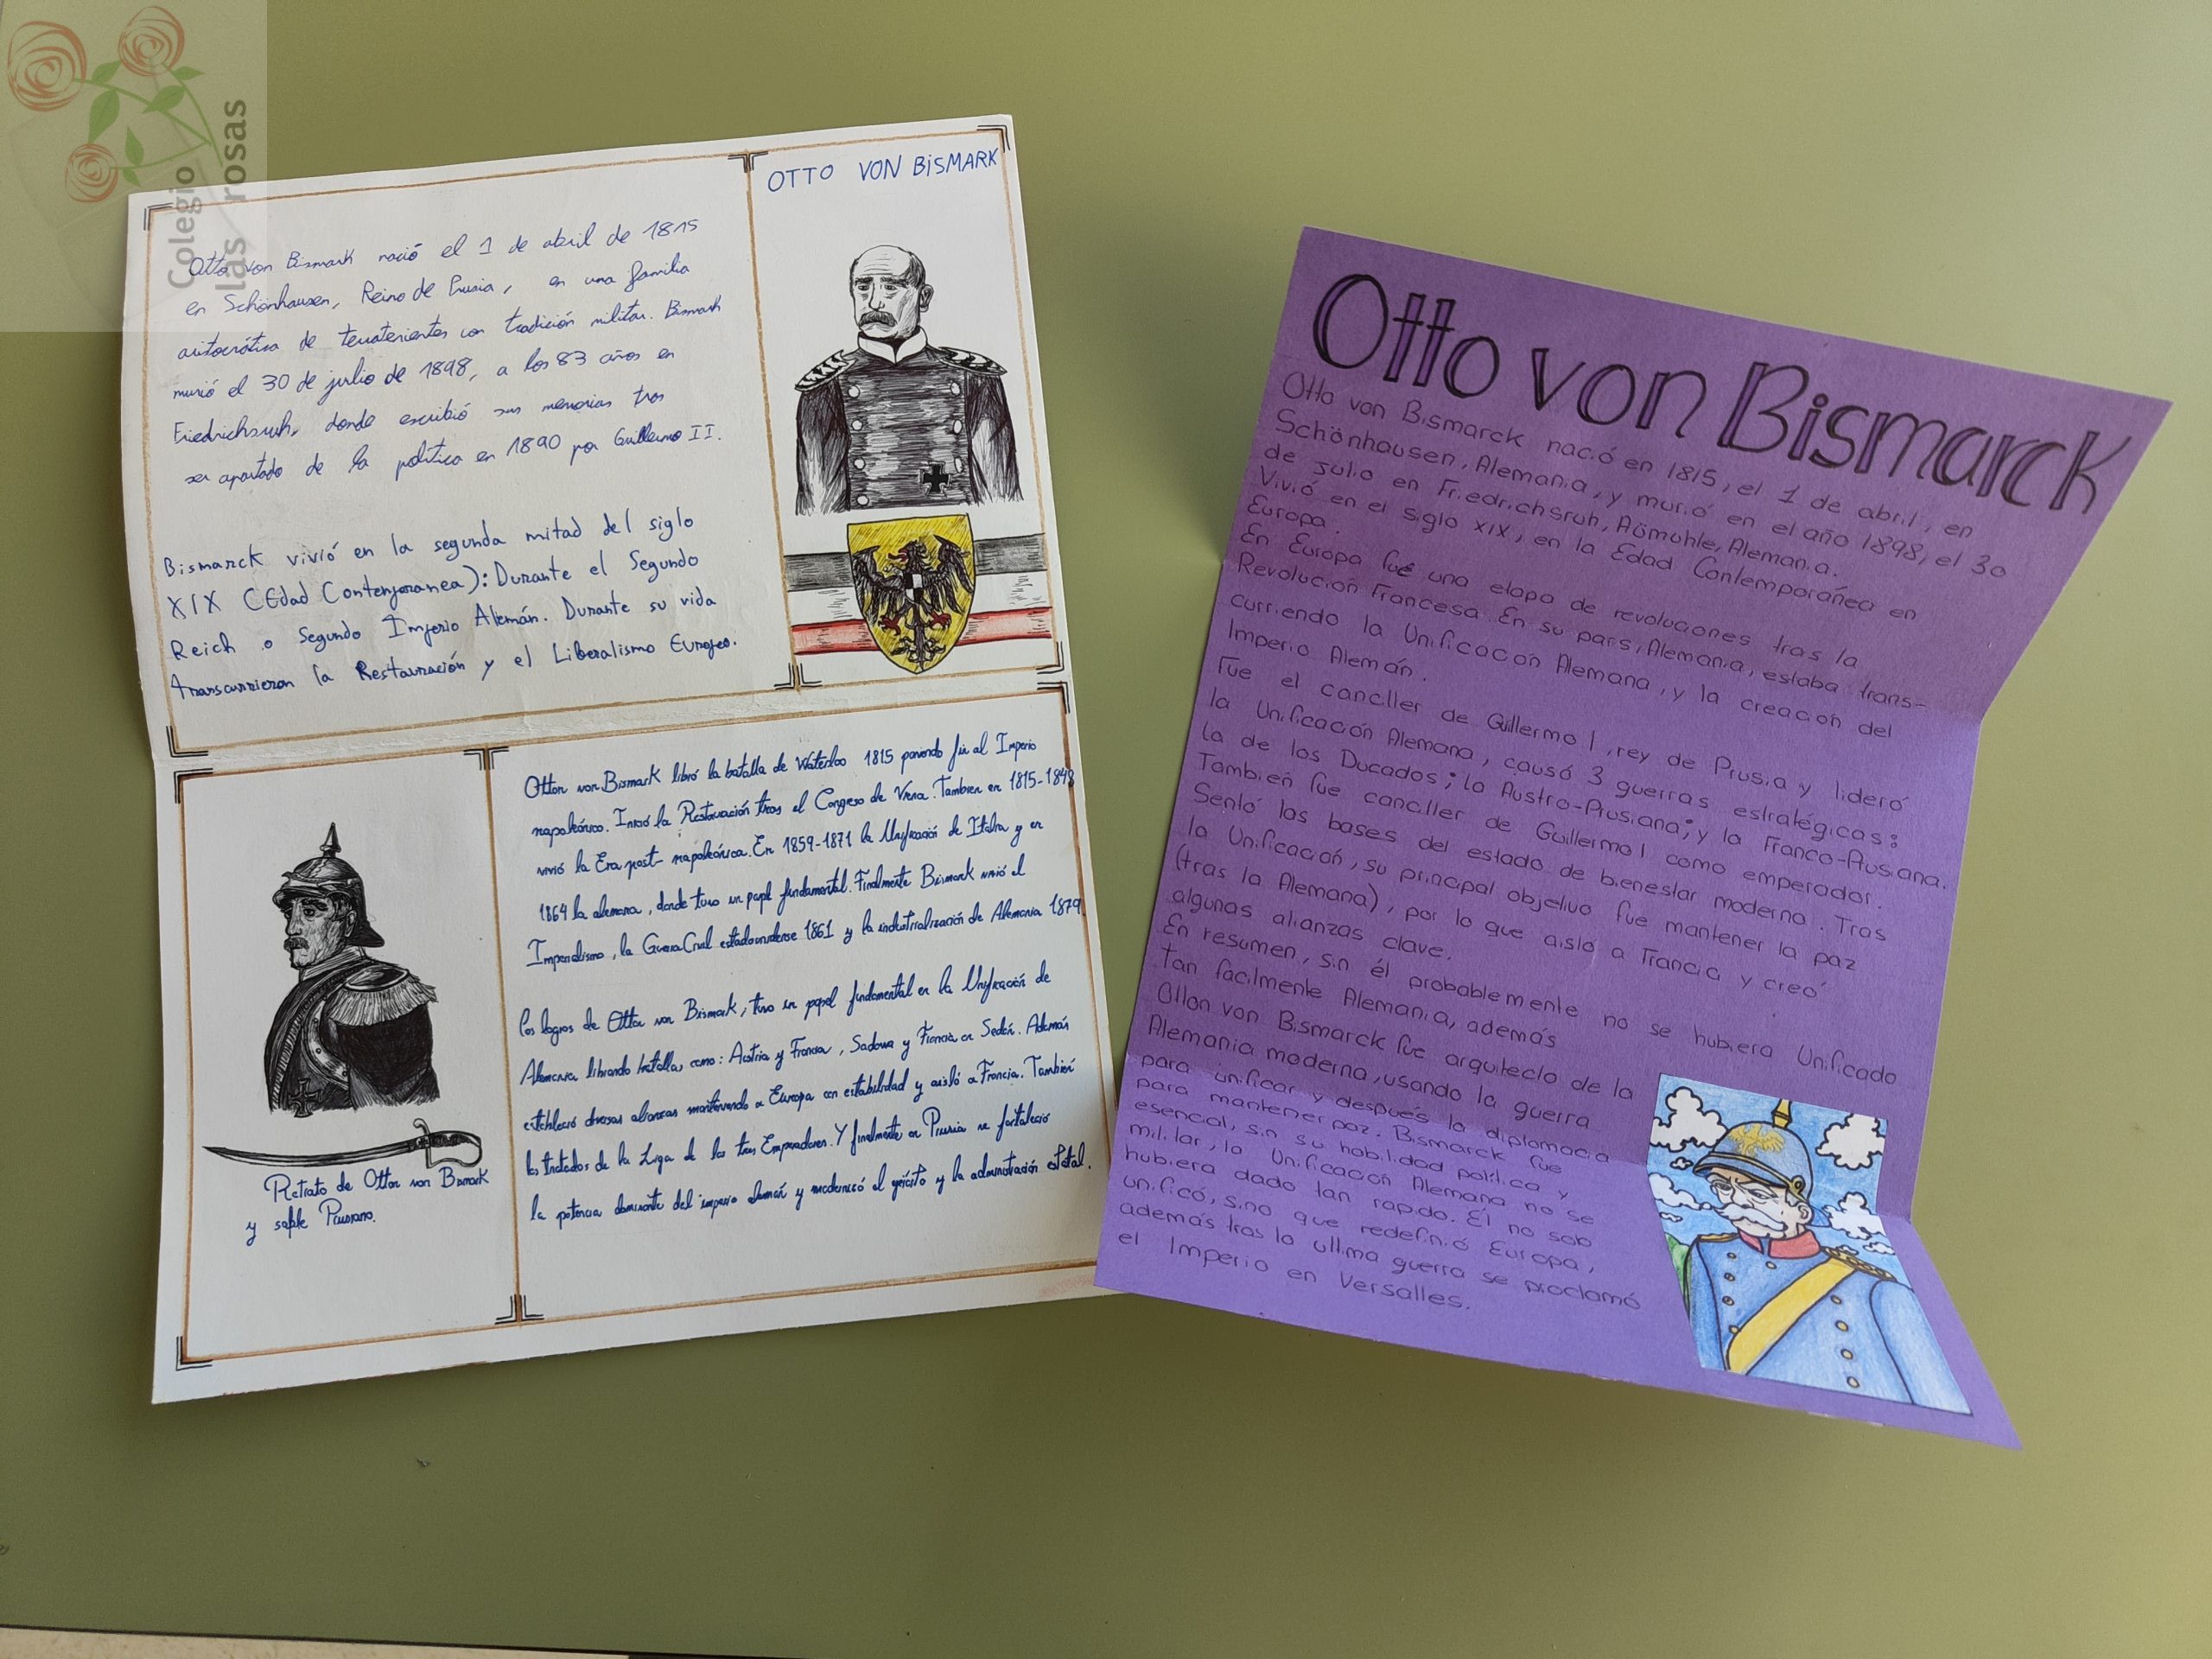 Colegio
las rosas
OTTO VON BiSMARK
Otto von Bismark nació el 1 de abril de 1815
en Schönhausen, Reino de Prusia, en una familia
aristocrática de terratenientes con tradición militar. Bismark
murió el 30 de julio de 1898, a los 83 años en
Friedrichsruh, donde escribió sus memorias tras
ser apartado de la política en 1890 por Guillermo II.
Bismarck vivió en la segunda mitad del siglo
XIX (Edad Contemporanea): Durante el Segundo
Reich o Segundo Imperio Alemán. Durante su vida
transcurrieron la Restauración y el Liberalismo Europeo.
Otton von Bismark libró la batalla de Waterloo 1815 poniendo fin al Imperio
napoleónico. Inició la Restauración tras el Congreso de Viena. Tambien en 1815-1848
vivió la Era post-napoleónica. En 1859-1871 la Unificación de Italia y en
1864 la alemana, donde tuvo un papel fundamental. Finalmente Bismark vivió el
Imperialismo, la Guerra Civil estadounidense 1861 y la industrialización de Alemania 1879.
Los logros de Otton von Bismark, tuvo un papel fundamental en la Unificación de
Alemania librando batallas como: Austria y Francia, Sadowa y Francia en Sedán. Además
estableció diversas alianzas manteniendo a Europa con estabilidad y aisló a Francia. También
los tratados de la Liga de los tres Emperadores. Y finalmente en Prusia se fortaleció
la potencia dominante del imperio alemán y modernizó el ejército y la administración estatal.
Retrato de Otton von Bismark
y sable Prusiano.
Otto von Bismarck
Otto von Bismarck nació en 1815, el 1 de abril, en
Schönhausen, Alemania, y murió en el año 1898, el 30
de julio en Friedrichsruh, Aümuhle, Alemania.
Vivió en el siglo XIX, en la Edad Contemporáñea en
Europa.
En Europa fue una etapa de revoluciones tras la
Revolución Francesa. En su país, Alemania, estaba trans-
curriendo la Unificación Alemana, y la creación del
Imperio Alemán.
Fue el canciller de Guillermo I, rey de Prusia y lideró
la Unificación Alemana, causó 3 guerras estratégicas:
la de los Ducados; la Austro-Prusiana; y la Franco-Prusiana.
También fue canciller de Guillermo I como emperador.
Sentó las bases del estado de bienestar moderno. Tras
la Unificación, su principal objetivo fue mantener la paz
(tras la Alemana), por lo que aisló a Francia y creó
algunas alianzas clave.
En resumen, sin él probablemente no se hubiera Unificado
tan fácilmente Alemania, además
Otton von Bismarck fue arquitecto de la
Alemania moderna, usando la guerra
para unificar y después la diplomacia
para mantener paz. Bismarck fue
esencial, sin su habilidad política y
militar, la Unificación Alemana no se
hubiera dado tan rapido. Él no solo
unificó, sino que redefinió Europa,
además tras la última guerra se proclamó
el Imperio en Versalles.